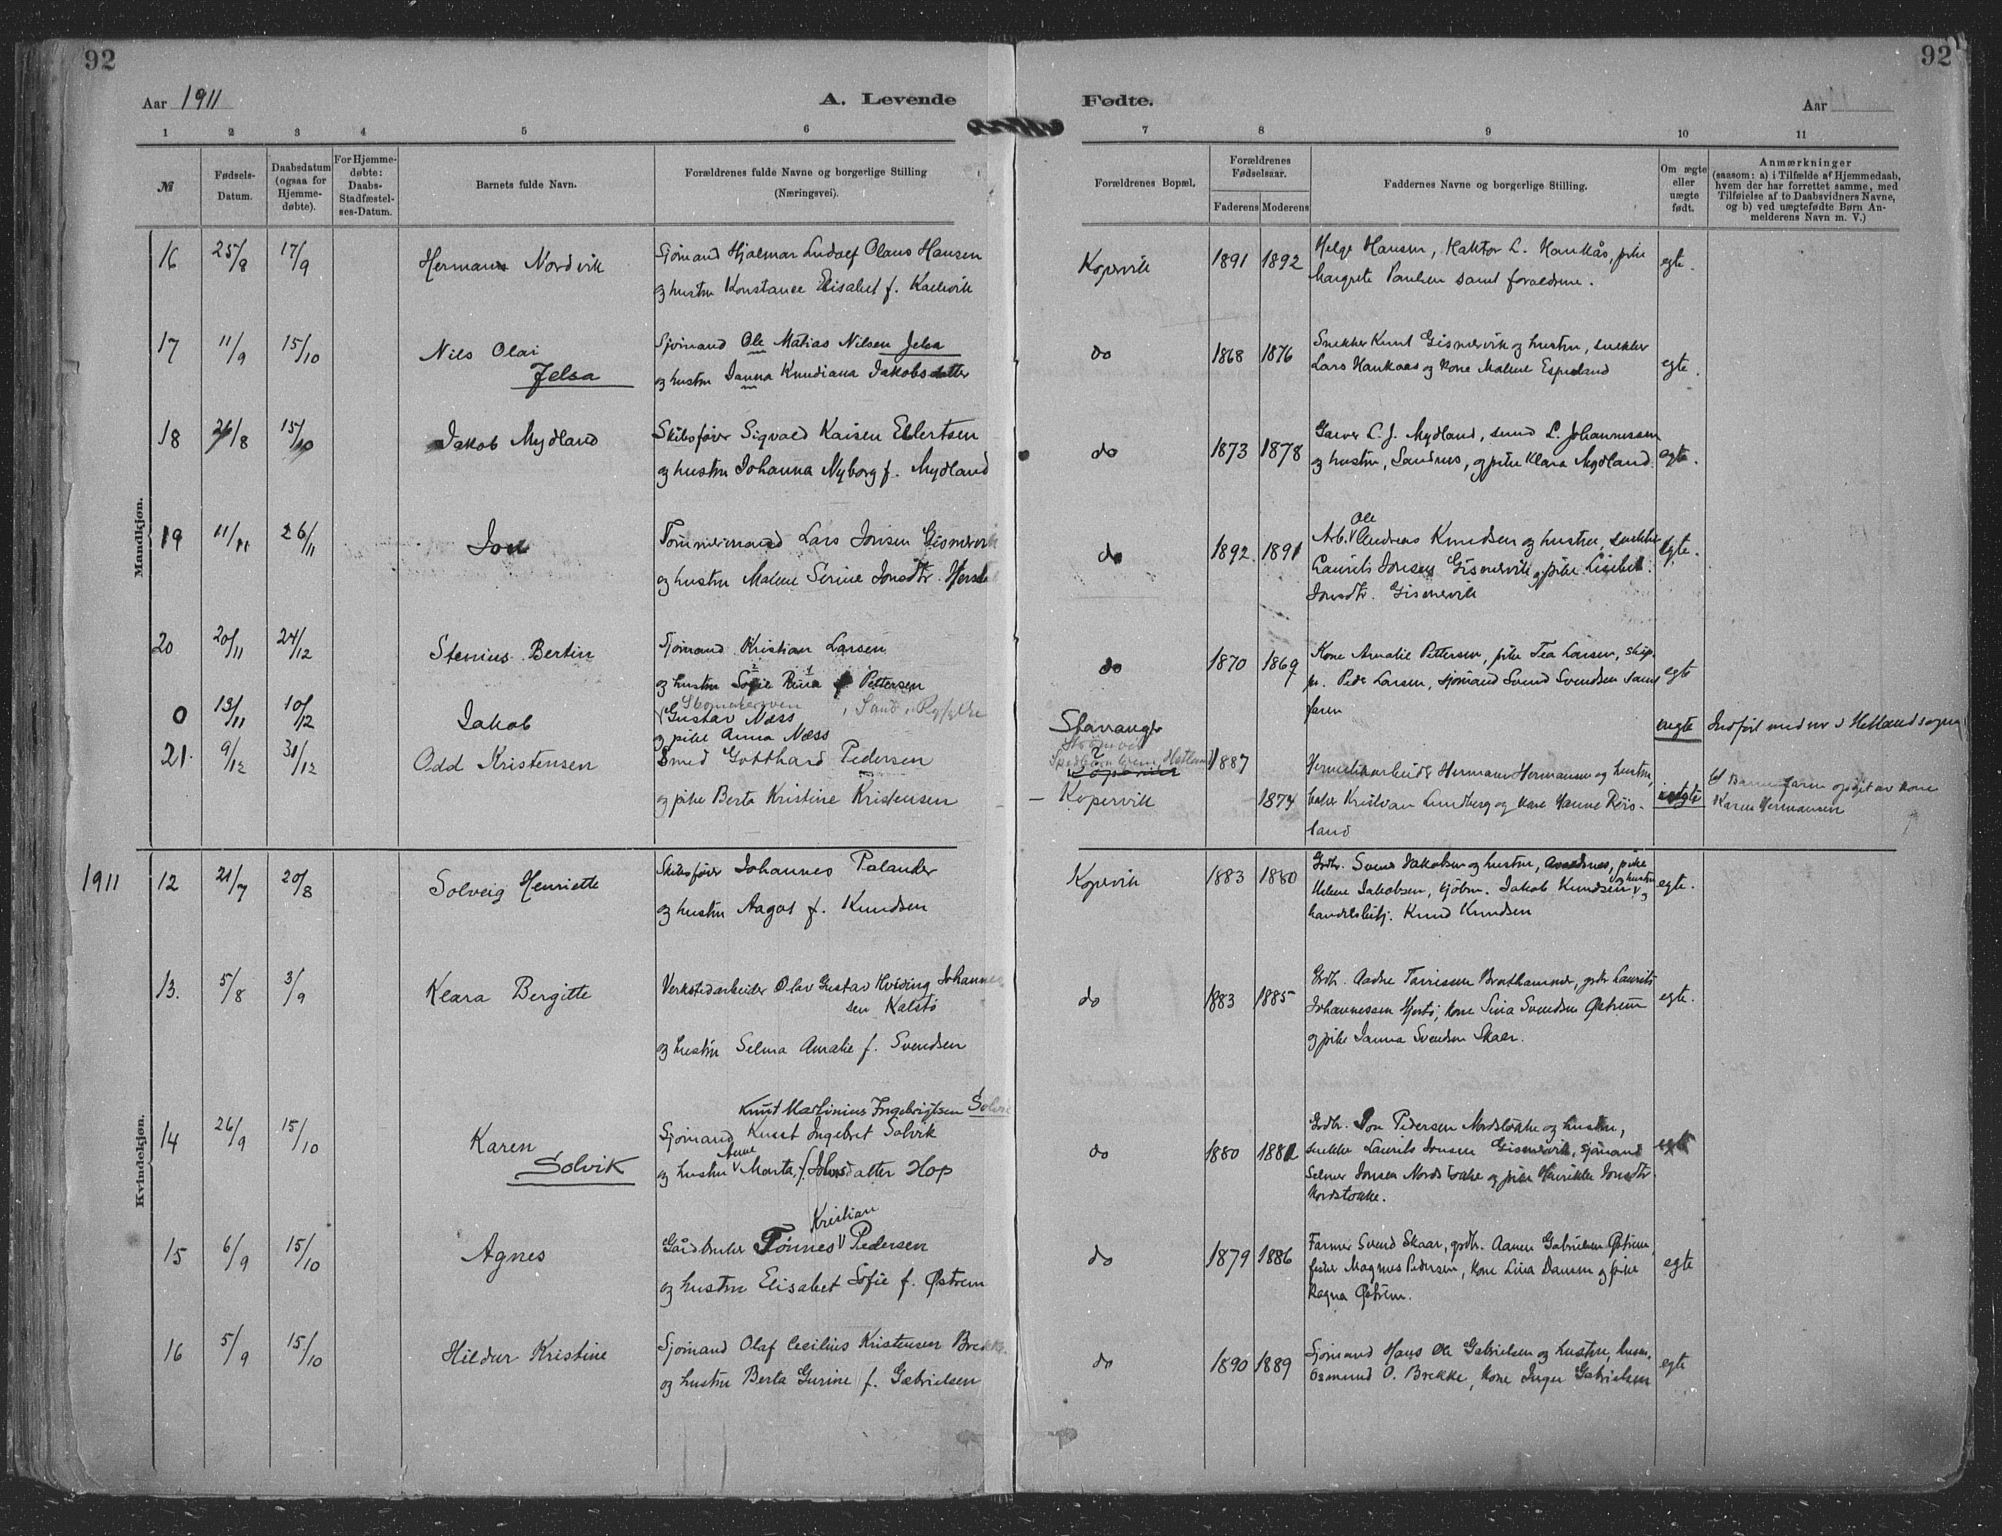 92
92
Aar 1911
A. Levende
Fødte.
Aar
1 2 3 4 5 6 7 8 9 10 11
№
Fødsels-
Datum.
Daabsdatum
(ogsaa for
Hjemme-
døbte).
For Hjemme-
døbte:
Daabs-
Stadfæstel-
ses-Datum.
Barnets fulde Navn.
Forældrenes fulde Navne og borgerlige Stilling
(Næringsvei).
Forældrenes Bopæl.
Forældrenes
Fødselsaar.
Faderens Moderens
Faddernes Navne og borgerlige Stilling.
Om ægte
eller
uægte
født.
Anmærkninger
(saasom: a) i Tilfælde af Hjemmedaab,
hvem der har forrettet samme, med
Tilføielse af to Daabsvidners Navne,
og b) ved uægtefødte Børn An-
melderens Navn m. V.)
Mandkjøn.
16 25/8 17/9 Herman Nordvik
Sjømand Hjalmar Ludolf Olaus Hansen
og hustru Konstance Elisabet f.
Kopervik 1891 1892
Helge Hansen, pike
Margrete Paulsen samt forældrene.
egte.
17 11/9 15/10 Nils Olai
Jelsa
Sjømand Ole Matias Nilsen Jelsa
og hustru Janna Knudiana Jakobsdatter
do 1868 1876
Snekker Knut Gismervik og hustru, snekker
Lars Haukaas og kone Malene Espeland
egte.
18 /8 15/10 Jakob Mydland
Skibsfører Sigvald Kaisen Ellertsen
og hustru Johanna Nyborg f. Mydland
do 1873 1878
Garver L. J. Mydland, smed L. Johannessen
og hustru, Sandnes, og pike Klara Mydland.
egte.
19 11/11 26/11 Jon
Tømmermand Lars Jonsen Gismervik
og hustru Malene Serine Jonsdtr.
do 1892. 1891
Ole
Arb. V Andreas Knudsen og hustru, snekker
Laurits Jonsen Gismervik og pike Lisebet
Jonsdtr. Gismervik
egte.
20 20/11 24/12 Stenius Bertin
Sjømand Kristian Larsen
og hustru Sofie Rina f Pettersen
do 1870 1869
Kone Amalie Pettersen, pike Tea Larsen, skip-
pr. Peder Larsen, sjømand Svend Svendsen samt
faren
egte
0 13/11 10/12 Jakob
Gustav Næss, Sand, Ryfylke
og pike Anna Næss
Stavanger
uegte
Indført med nr i Hetland sogn
21. 9/12 31/12 Odd Kristensen
Smed Gotthard Pedersen
og pike Berta Kristine Kristensen
Kopervik
– Kopervik
1887
1874
Hermetikarbeider Herman Hermansen og hustru,
Kristian Lundberg og kone Hanne Røis-
land
uegte
b) Barnefaren opgit av kone
Karen Hermansen
Kvindekjøn.
1911 12 21/7 20/8 Solveig Henriette
Skibsfører Johannes Polander
og hustru Aagot f. Knudsen
Kopervik 1883 1880
Grdbr. Svend Jakobsen og hustru, pike
Helene Jakobsen, kjøbm. Jakob Knudsen V og hustru og
handelsbetj. Knud Knudsen
egte.
13. 5/8 3/9 Klara Bergitte
Verkstedarbeider Olav Gustav Hviding Johannes-
sen Kalstø
og hustru Selma Amalie f. Svendsen
do 1883 1885
Grdbr. Aadne Tørrissen Brathammer, grdbr Laurits
Johannessen Hjertø, kone Sina Svendsen Østrem
og pike Janna Svendsen Skaar.
egte.
14 26/9 15/10 Karen
Solvik
Knut Martinius Ingebrigtsen Solvik
Sjømand Knut Ingebret Solvik
Anne
og hustru V Marta f. Johnsdatter Hop
do 1880 1882
Grdbr. Jon Pedersen Nordstokke og hustru,
snekker Laurits Jonsen Gismervik, sjømand
Selmer Jonsen Nordstokke og pike Henrikke Jonsdtr.
Nordstokke.
egte
15 6/9 15/10 Agnes
Kristian
Gårdbruker Tønnes V Pedersen
og hustru Elisabet Sofie f. Østrem
do 1879 1886
Farmer Svend Skaar, grdbr. Aanen Gabrielsen Østrem,
fisker Magnus Pedersen, kone Lina Dansen og pike
Ragna Østrem.
egte
16 5/9 15/10 Hildur Kristine
Sjømand Olaf Cecilius Kristensen Brekke
og hustru Berta Gurine f. Gabrielsen
do 1890 1889
Sjømand Hans Ole Gabrielsen og hustru, husm.
Osmund O. Brekke, kone Inger Gabrielsen
egte